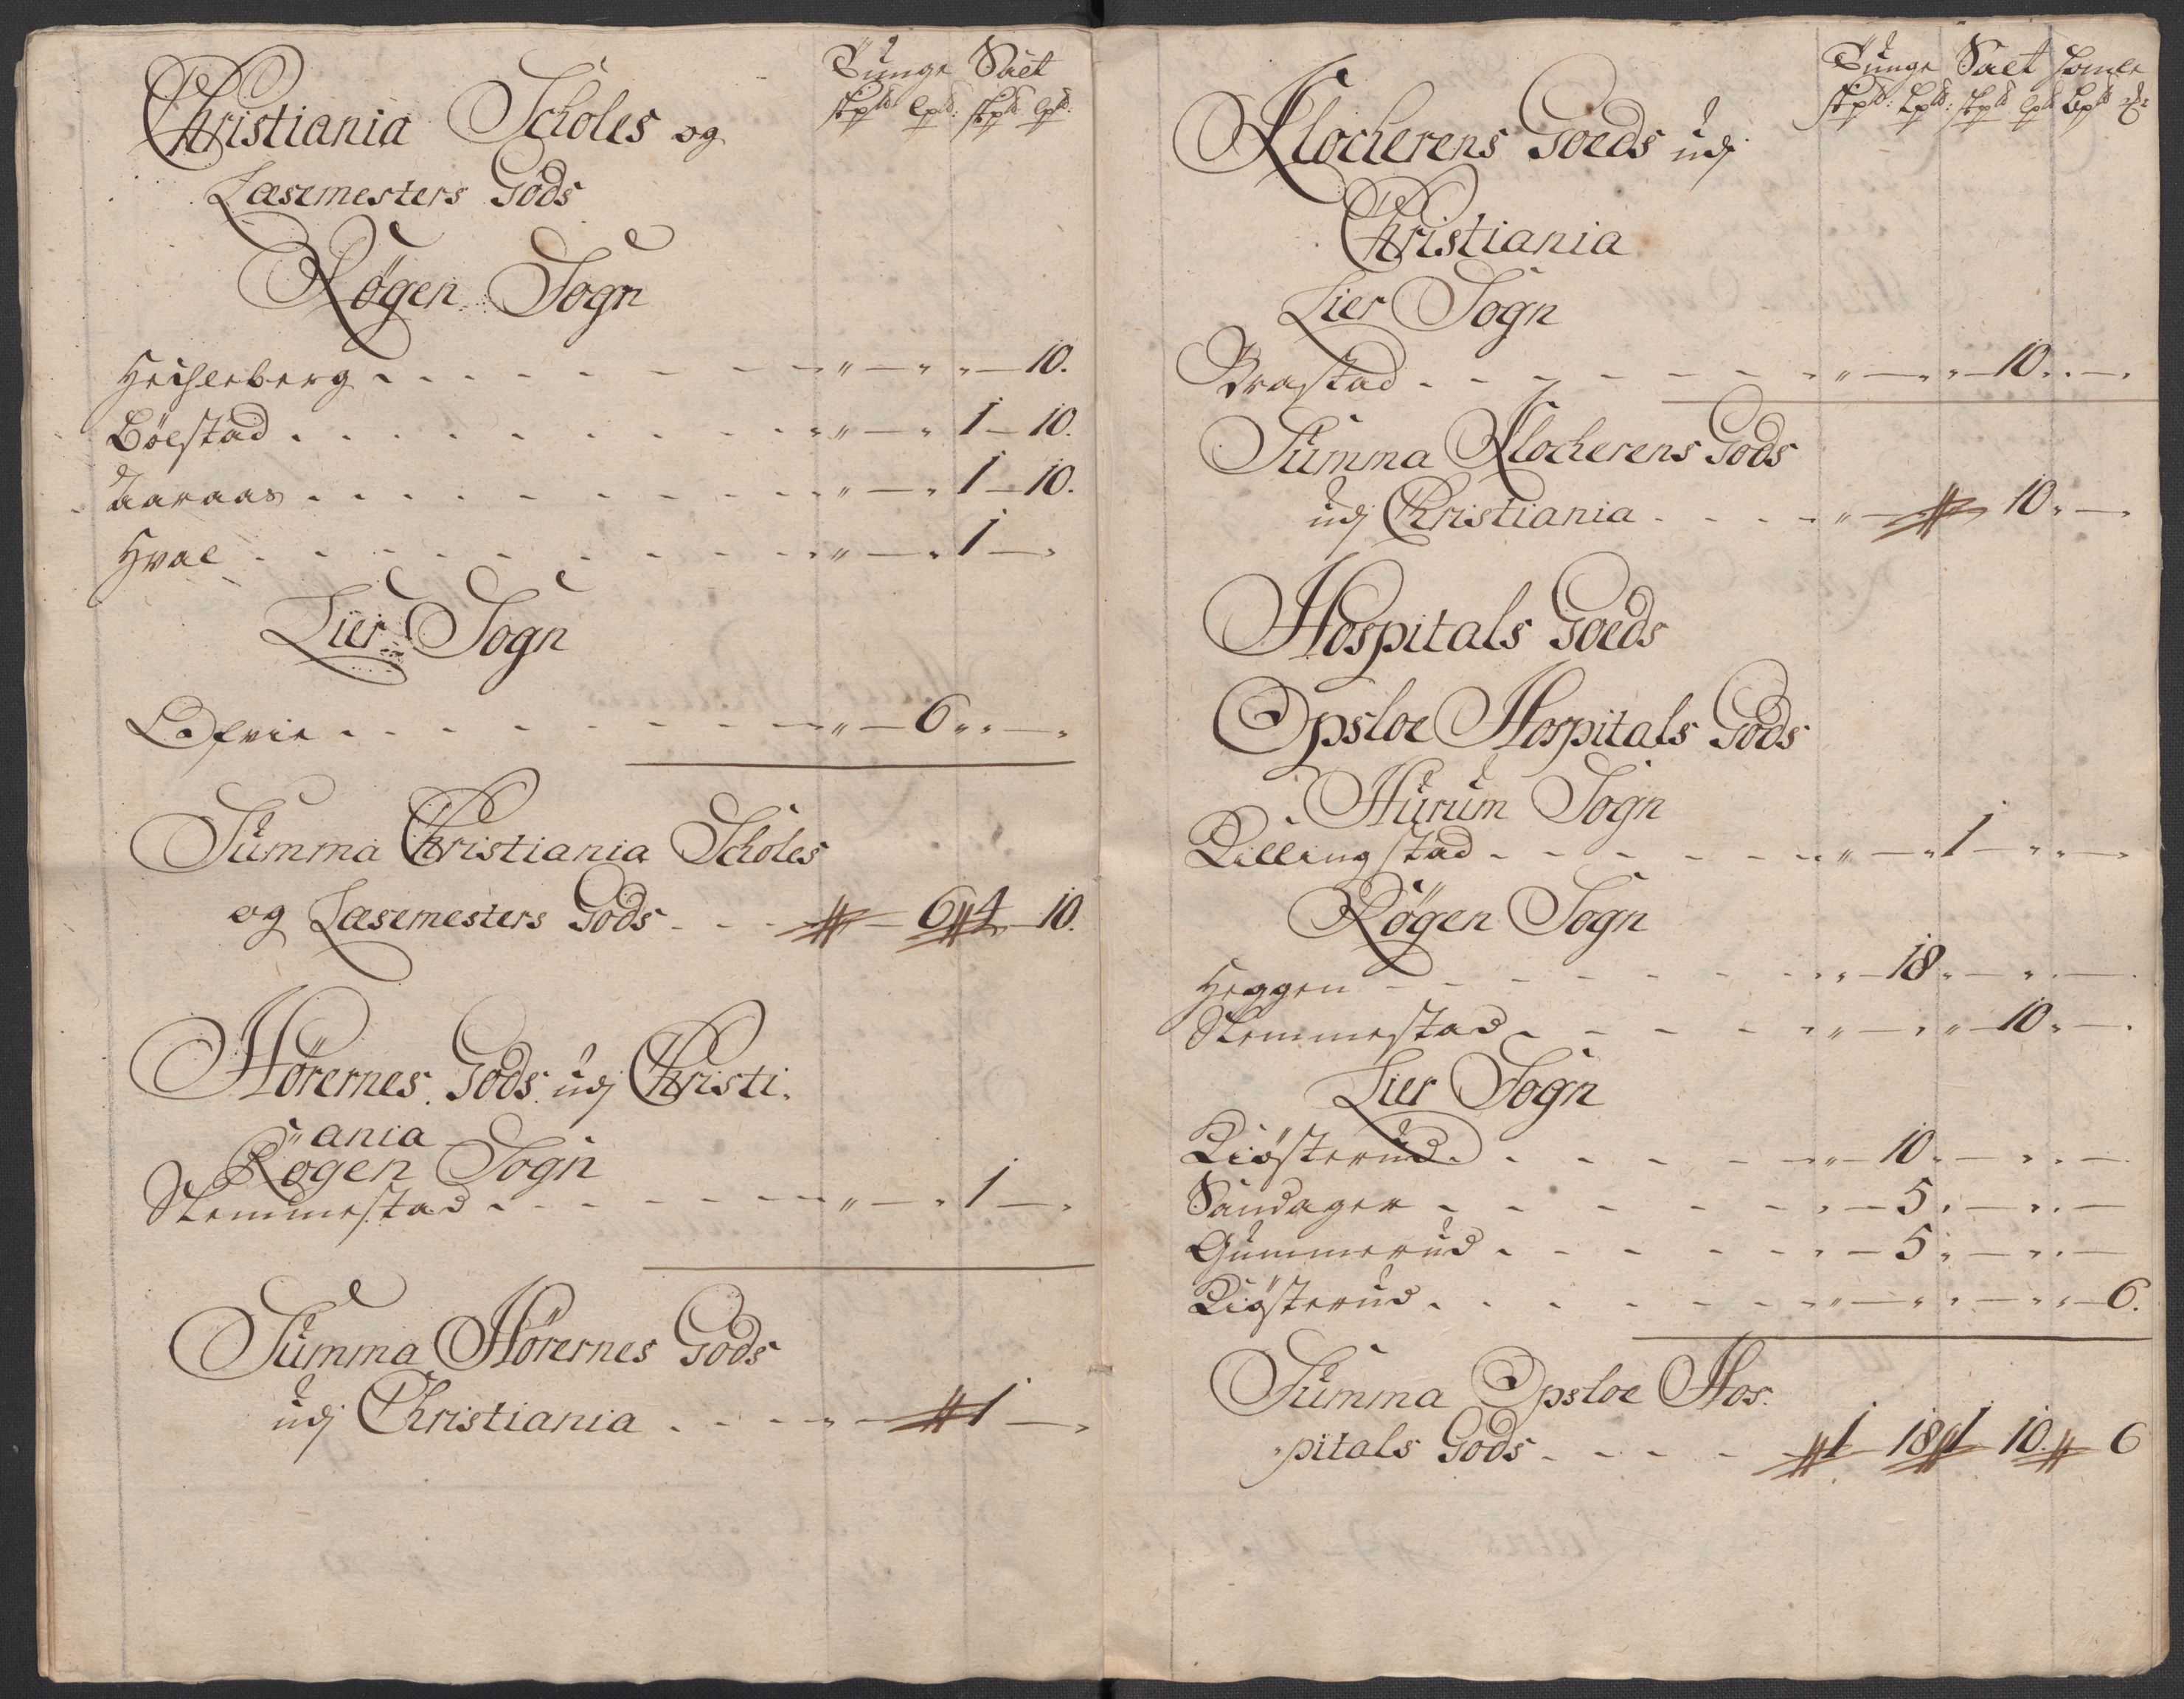 Tunge Salt
skpd: lpd: skpd lpd:
Christiania Scholes og
Læsemesters Gods
Røgen Sogn
Hechleberg . . . . . . . . „ — „ „ — 10.
Bölstad . . . . . . . . „ — „ 1 — 10.
Aaraas . . . . . . . . „ — „ 1 — 10.
Hval . . . . . . . . „ — „ 1 — „
Lier Sogn
. . . . . . . . „ — 6 „ „ — „
Summa Christiania Scholes
og Læsemesters Gods . . . — 6 4 — 10.
Hörernes Gods udj Christi-
ania
Røgen Sogn
Slemmestad . . . . . . . „ — „ 1 — „
Summa Hörernes Gods
udj Christiania . . . . — 1 — „
Tunge Salt Homle
skpd: Lpd: skpd lpd Bpd
Klocherens Goeds udj
Christiania
Lier Sogn
Brastad . . . . . . . . „ — „ „ — 10 „ — „
Summa Klocherens Gods
udj Christiania . . . . „ — 10 „ — „
Hospitals Goeds
Opsloe Hospitals Gods
Hurum Sogn
Killingstad . . . . . . . „ — „ 1 — „ „ — „
Røgen Sogn
Heggen . . . . . . . „ — 18 „ — „ „ —
Slemmestad . . . . . . „ — „ „ — 10 „ — „
Lier Sogn
Kiøsterud . . . . . . „ — 10 „ — „ „ —
Sandager . . . . . . „ — 5 „ — „ „ —
Gummerud . . . . . . „ — 5 „ — „ „ —
Kiøsterud . . . . . . „ — „ „ — „ „ — 6.
Summa Opsloe Hos-
pitals Gods . . . . 1 18 1 10 6